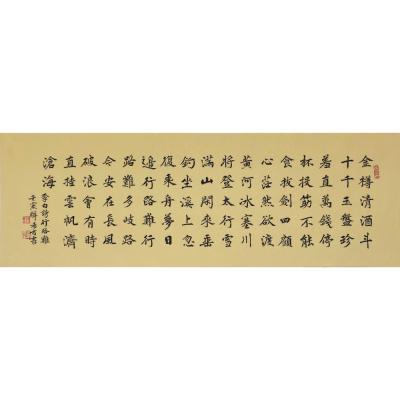 金樽清酒斗
十千玉盤珍
羞直萬錢停
杯投筯不能
食拔劍四顧
心茫然欲渡
黃河冰塞川
將登太行雪
滿山閑來垂
釣坐溪上忽
復乘舟夢日
邊行路難行
路難多歧路
今安在長風
破浪會有時
直挂雲帆濟
滄海
李白詩行路難
壬寅